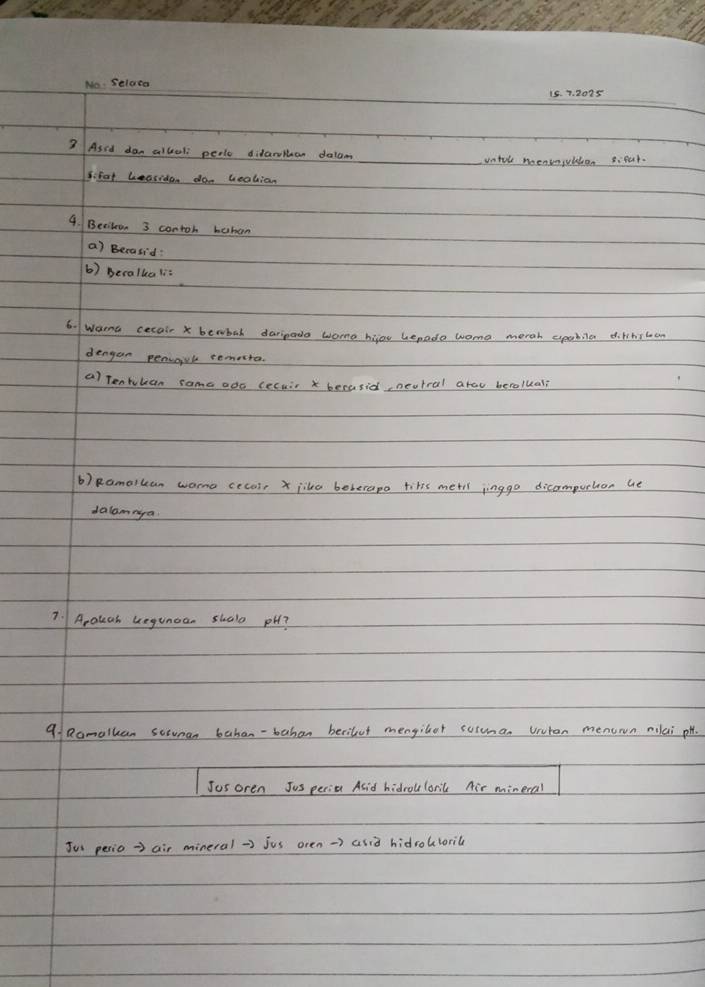 No: Selasa
15.7.2025
3 Asid dan alkali perlu dilarutkan dalam ______ untuk menunjukkan sifat-
sifat keasidan dan kealian
4. Berikan 3 contoh bahan
a) Berasid:
b) Beralkali:
6. Warna cecair X berubah daripada warna hijau kepada warna merah apabila dititiskan
dengan penunjuk semesta.
a) Tentukan sama ada cecair X berasid, neutral atau beralkali
b) Ramalkan warna cecair X jika beberapa titis metil jingga dicampurkan ke
dalamnya.
7. Apakah kegunaan skala pH?
9. Ramalkan susunan bahan-bahan berikut mengikut susunan urutan menurun nilai pH.
Jus oren Jus peria Asid hidroklorik Air mineral
Jus peria → air mineral → jus oren → asid hidroklorik